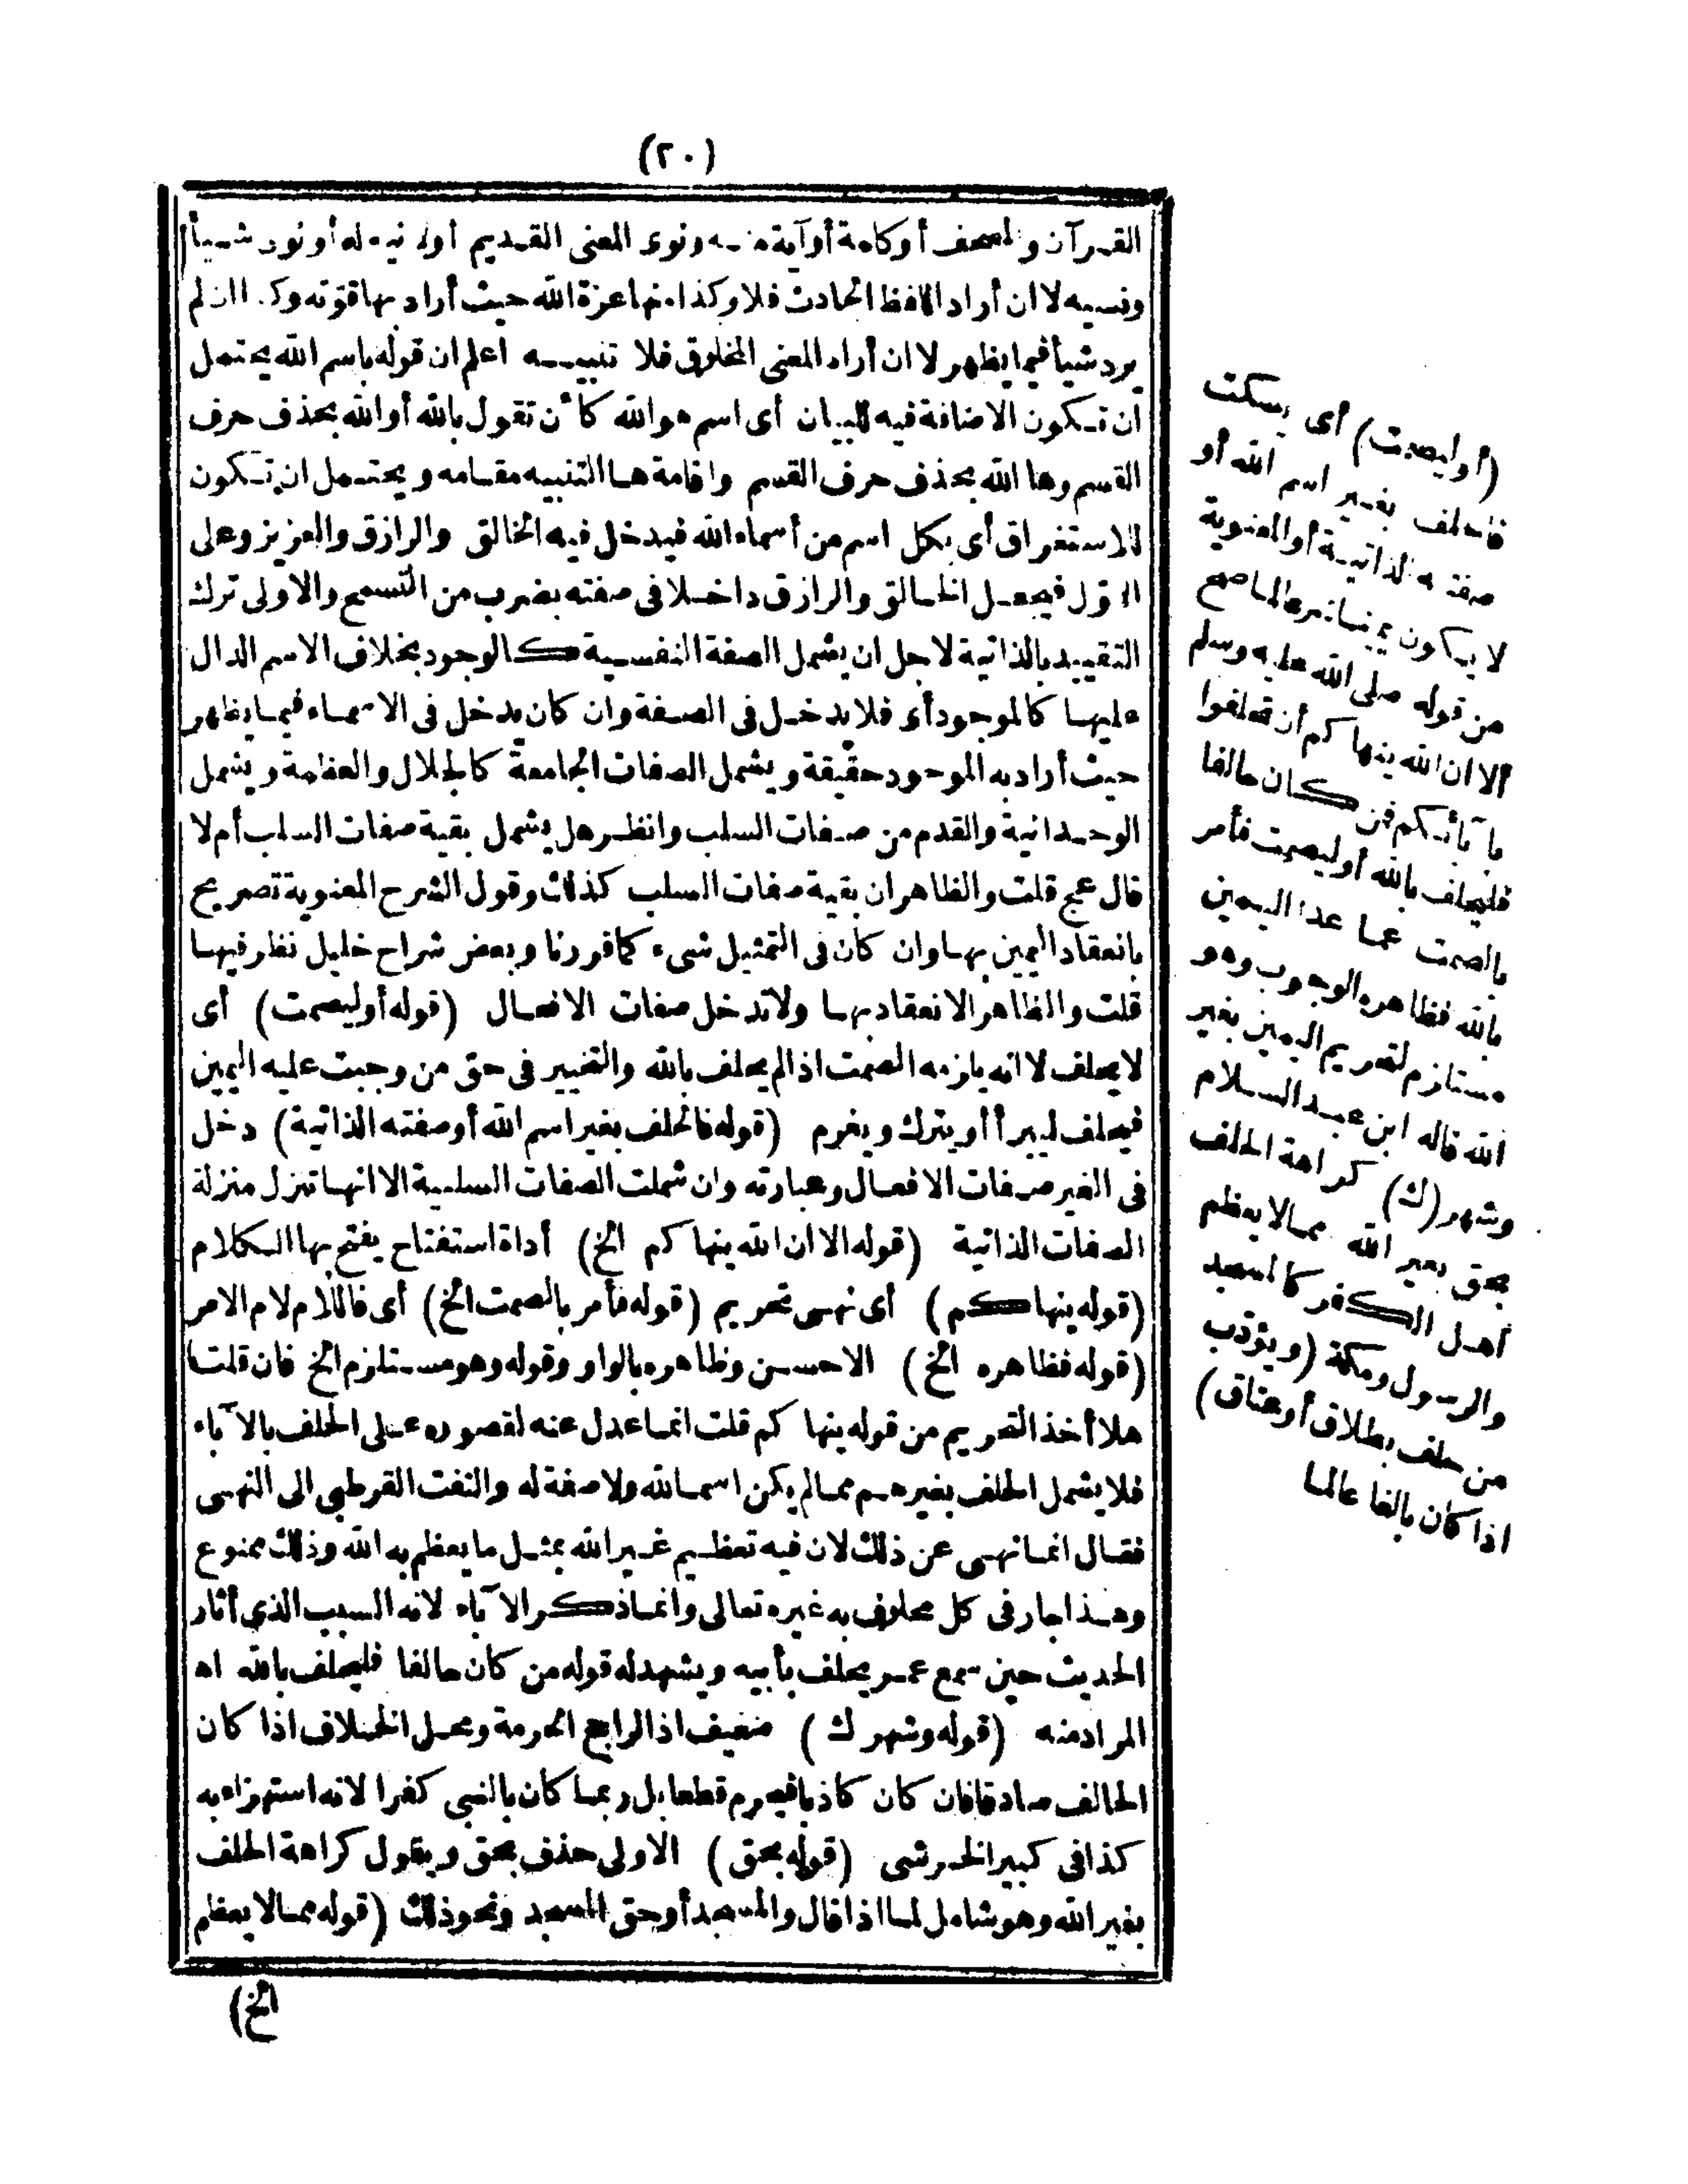 (٢٠)
القرآن والمصحف أو كلمة أو آية منه ونوى المعنى القديم أو لا نية له أو نوى شيأ
ونسيه لا ان أراد اللفظ الحادث فلا وكذا منها عزة الله حيث أراد بها قوته وكذا ان لم
يرد شيأ فيما يظهر لا ان أراد المعنى المخلوق فلا تنبيه اعلم ان قوله باسم الله يحتمل
أن تكون الاضافة فيه للبيان أى اسم هو الله كأن تقول بالله أو الله بحذف حرف
القسم وها الله بحذف حرف القسم واقامة ها التنبيه مقامه ويحتمل ان تكون
للاستغراق أى بكل اسم من أسماء الله فيدخل فيه الخالق والرازق والعزيز وعلى
الاول فيجعل الخالق والرازق داخلا فى صفته بضرب من التسمح والاولى ترك
التقييد بالذاتية لاجل ان يشمل الصفة النفسية كالوجود بخلاف الاسم الدال
عليها كالموجود أى فلا يدخل فى الصفة وان كان يدخل فى الاسماء فيما يظهر
حيث أراد به الموجود حقيقة ويشمل الصفات الجامعة كالجلال والعظمة ويشمل
الوحدانية والقدم من صفات السلب وانظر هل يشمل بقية صفات السلب أم لا
قال عج قلت والظاهر ان بقية صفات السلب كذلك وقول الشرح المعنوية تصريح
بانعقاد اليمين بها وان كان فى التمثيل شىء كما قررنا وبعض شراح خليل نظر فيها
قلت والظاهر الانعقاد بها ولا تدخل صفات الافعال (قوله أو ليصمت) أى
لا يحلف لا انه يلزمه الصمت اذا لم يحلف بالله والتخيير فى حق من وجبت عليه اليمين
فيحلف ليبرأ أو يترك ويغرم (قوله فالحلف بغير اسم الله أو صفته الذاتية) دخل
فى الغير صفات الافعال وعبارته وان شملت الصفات السلبية الا انها تنزل منزلة
الصفات الذاتية (قوله الا ان الله ينهاكم الخ) أداة استفتاح يفتح بها الكلام
(قوله ينهاكم) أى نهى تحريم (قوله فأمر بالصمت الخ) أى فاللام لام الامر
(قوله فظاهره الخ) الاحسن وظاهره بالواو وقوله وهو مستلزم الخ فان قلت
هلا أخذ التحريم من قوله ينهاكم قلت انما عدل عنه لقصوره على الحلف بالآباء
فلا يشمل الحلف بغيرهم مما لم يكن اسما لله ولا صفة له والتفت القرطبى الى النهى
فقال انما نهى عن ذلك لان فيه تعظيم غير الله بمثل ما يعظم به الله وذلك ممنوع
وهذا جار فى كل محلوف به غيره تعالى وانما ذكر الآباء لانه السبب الذي أثار
الحديث حين سمع عمر يحلف بأبيه ويشهد له قوله من كان حالفا فليحلف بالله اه
المراد منه (قوله وشهر ك) ضعيف اذ الراجح الحرمة ومحل الخلاف اذا كان
الحالف صادقا فان كان كاذبا فيحرم قطعا بل ربما كان بالنبى كفرا لانه استهزاء به
كذا فى كبير الخرشى (قوله بحق) الاولى حذف بحق ويقول كراهة الحلف
بغير الله وهو شامل لما اذا قال والمسجد أو حق المسجد ونحو ذلك (قوله مما لا يعظم
الخ)
(أو ليصمت) أى يسكت
فالحلف بغير اسم الله أو
صفته الذاتية أو المعنوية
لا يكون يمينا شرعا لما صح
من قوله صلى الله عليه وسلم
ألا ان الله ينهاكم أن تحلفوا
بآبائكم فمن كان حالفا
فليحلف بالله أو ليصمت فأمر
بالصمت عما عدا اليمين
بالله فظاهره الوجوب وهو
مستلزم لتحريم اليمين بغير
الله قاله ابن عبد السلام
وشهر (ك) كراهة الحلف
بحق بغير الله مما لا يعظم
أهل الكفر كالمسجد
والرسول ومكة (ويؤدب
من حلف بطلاق أو عتاق)
اذا كان بالغا عالما